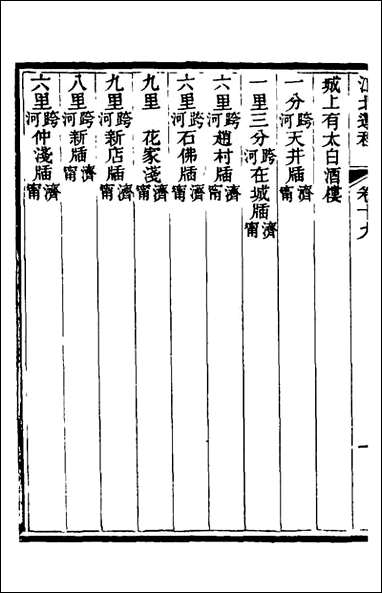 江北運程 卷十九 一
城上有太白酒樓
一分跨河天井牐濟甯
一里三分跨河在城牐濟甯
六里跨河趙村牐濟甯
六里跨河石佛牐濟甯
九里 花家淺濟甯
九里跨河新店牐濟甯
八里跨河新牐濟甯
六里跨河仲淺牐濟甯